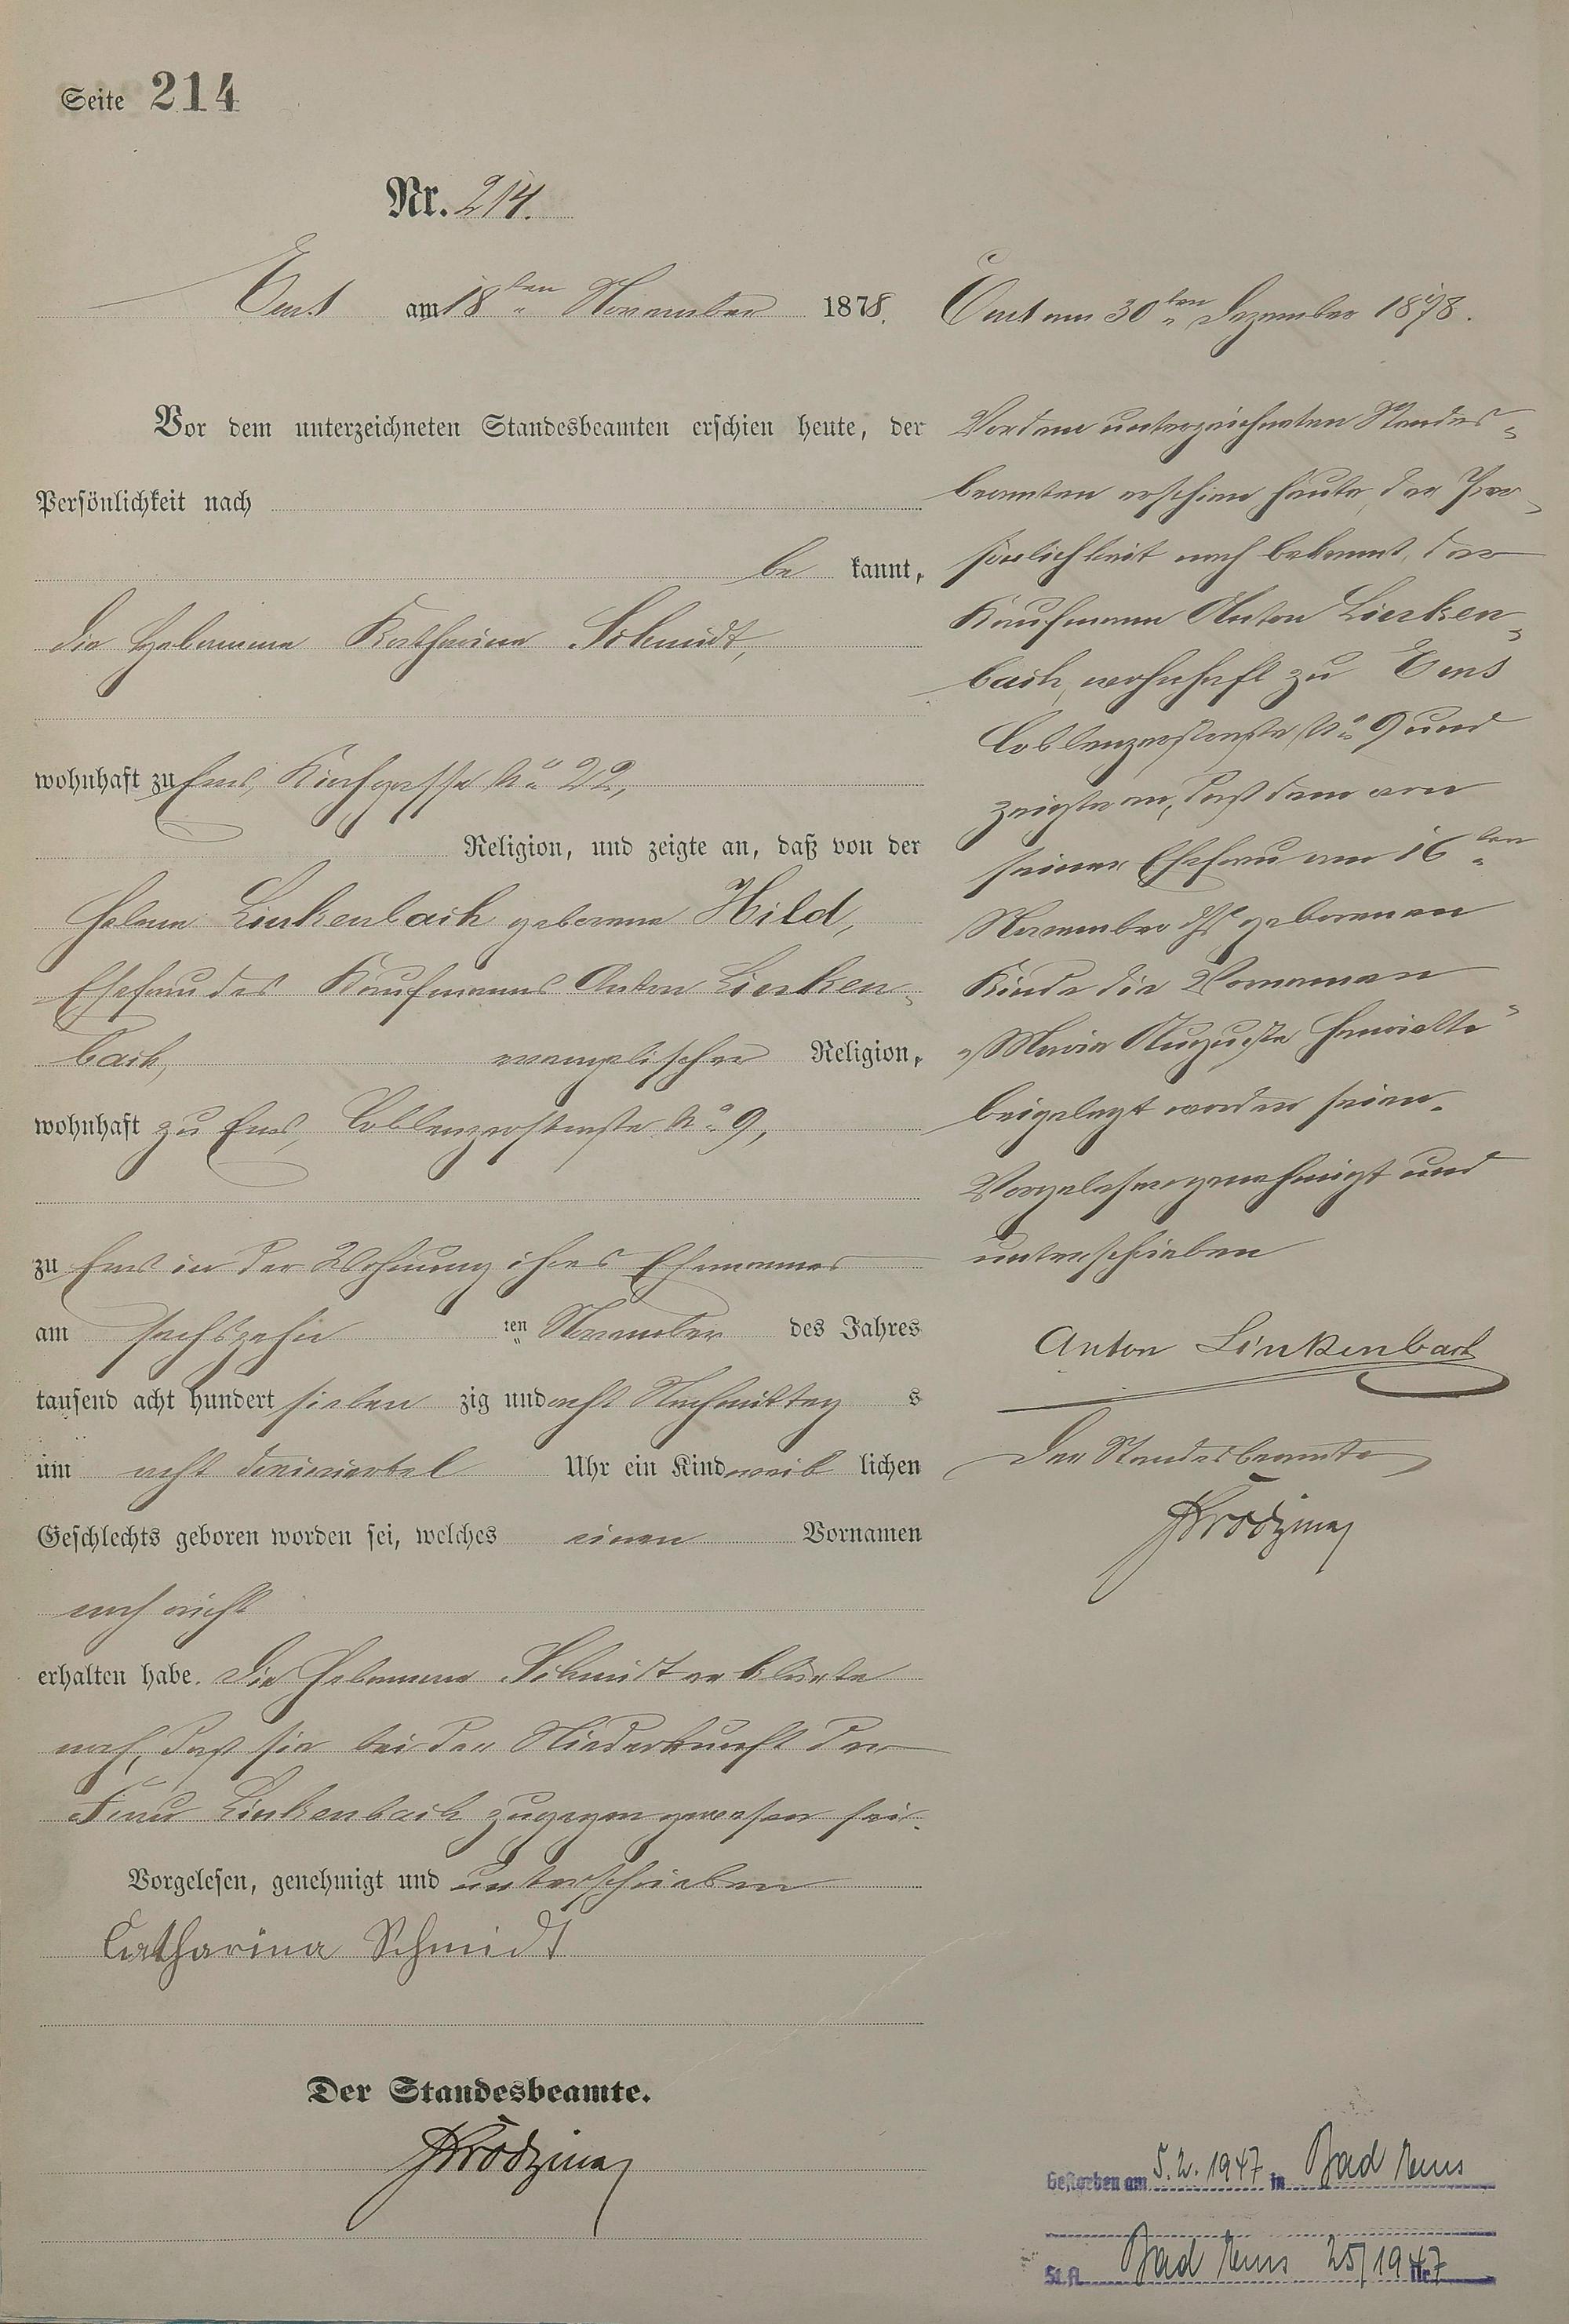 Seite 214
Nr. 214.
Ems am 18ten November 1878.
Vor dem unterzeichneten Standesbeamten erschien heute, der
Persönlichkeit nach
be kannt,
die Hebamme Katharina Schmidt,
wohnhaft zu Ems, Kirchgasse No 22,
Religion, und zeigte an, daß von der
Helene Linkenbach geborene Hild,
Ehefrau des Kaufmanns Anton Linken-
bach, evangelischer Religion,
wohnhaft zu Ems, Coblenzerstraße No 9,
zu Ems in der Wohnung ihres Ehemannes
am sechszehn ten November des Jahres
tausend acht hundert sieben zig und acht Nachmittag s
um acht dreiviertel Uhr ein Kind weib lichen
Geschlechts geboren worden sei, welches einen Vornamen
noch nicht
erhalten habe. Die Hebamme Schmidt erklärte
noch, daß sie bei der Niederkunft der
Frau Linkenbach zugegen gewesen sei.
Vorgelesen, genehmigt und unterschrieben
Catharina Schmidt
Der Standesbeamte.
Ems am 30ten Dezember 1878.
Vor dem unterzeichneten Standes-
beamten erschien heute, der Per-
sönlichkeit nach bekannt, der
Kaufmann Anton Linken-
bach, wohnhaft zu Ems
Coblenzerstraße No 9 und
zeigte an, daß dem von
seiner Ehefrau am 16ten
November ds Js geborenen
Kinde die Vornamen
„Maria Auguste Henriette"
beigelegt worden seien.
Vorgelesen genehmigt und
unterschrieben
Anton Linkenbach
Der Standesbeamte
Gestorben am 5.2.1947 in Bad Ems
St.A. Bad Ems 25/1947 Nr.